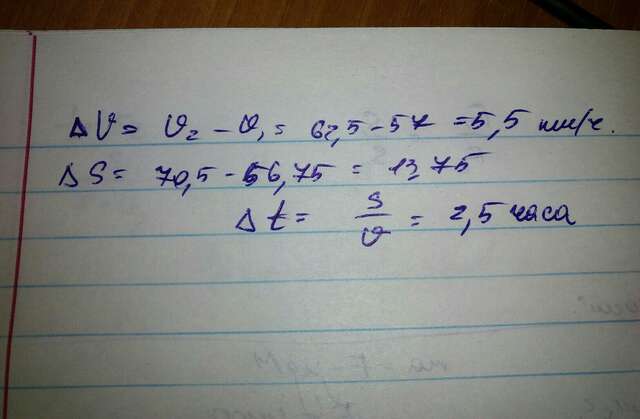 ΔV = V₂ - V₁ = 62,5 - 57 = 5,5 км/ч.
ΔS = 70,5 - 56,75 = 13,75
Δt = S/V = 2,5 часа